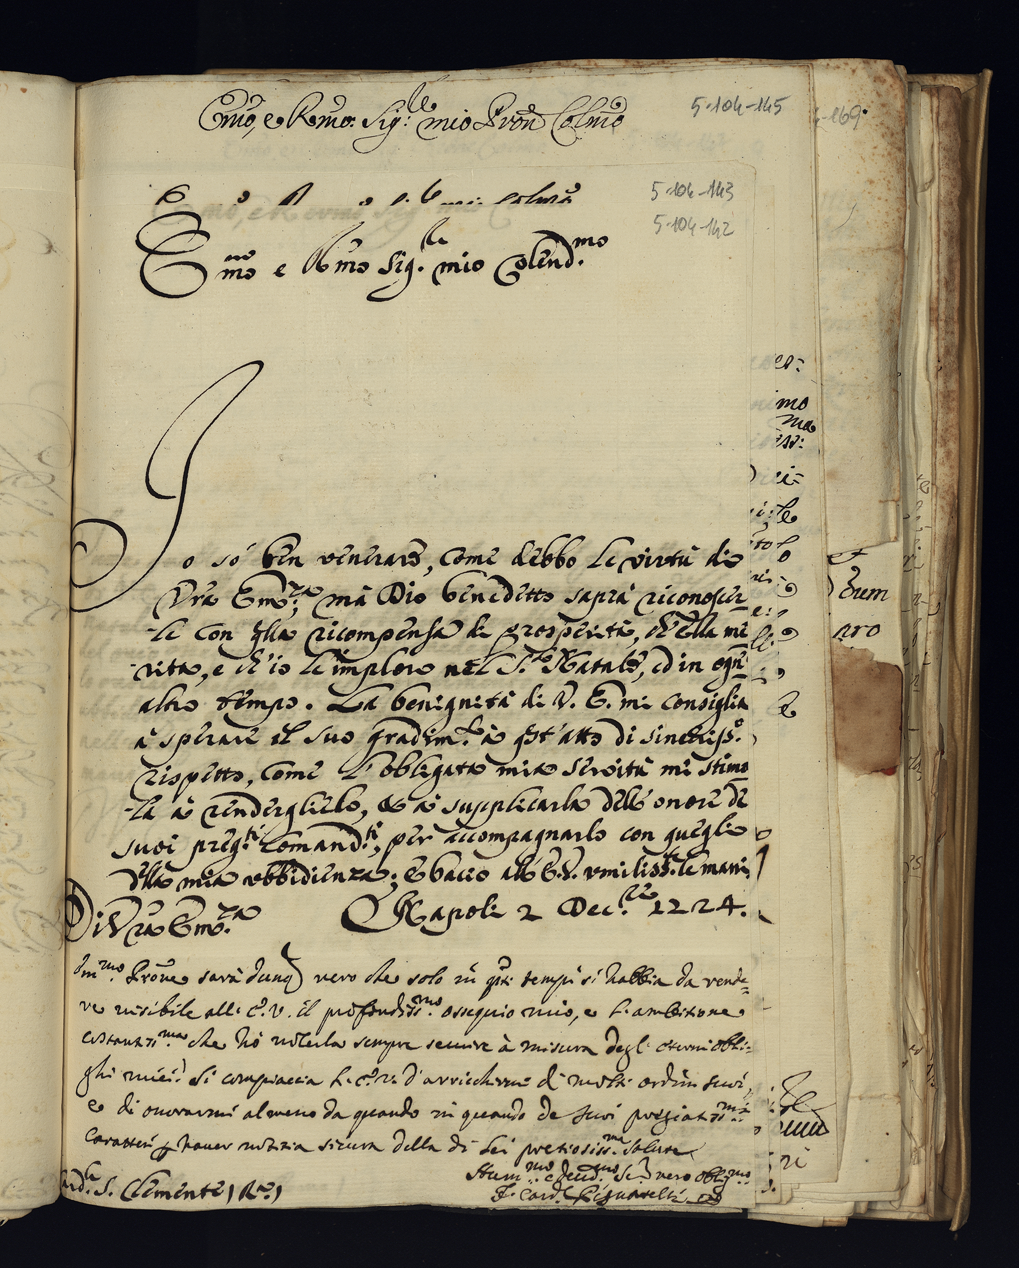 Emo, e Rmo. Sig:re mio Pron Colmo
5·104-145
-169·
5·104-143
5·104-142
Emo e Rmo Sig.re mio Colend.mo
Io sò ben venerare, come debbo le virtù di
Vra Emza, mà Dio benedetto saprà riconoscer=
=le con qlla ricompensa di prosperità, ch'Ella me
=rita, e ch'io le imploro nel S.to Natale, ed in ogni
altro tempo. La benignità di V. E. mi consiglia
à sperare il suo gradim.to à qst'atto di sinceriss.o
rispetto, come l'obligata mia servitù mi stimo
=la à renderglielo, & à supplicarla dell'onore de
suoi preg.ti comand.ti, per accompagnarlo con quegli
della mia ubbidienza; e bacio all'E.V. umiliss.te le mani,
Di Vra Emza Napoli 2 Dec.re
Emmo Prone sarà dunq vero che solo in qti tempi si habbia da rende=
re visibile all' E. V. il profondiss.mo ossequio mio, e l'ambitione
costantiss.ma che hò di servire à misura degl' eterni obli=
ghi miei? Si compiaccia l'E.V. d'arricchirmi di molti ordini suoi,
e di onorarmi almeno da quando in quando de suoi pregiatiss.mi
caratteri p haver notitia sicura della di Lei pretiosiss.ma salute
vero oblig.mo
F. Card. Pignatelli
Card.le S. Clemente